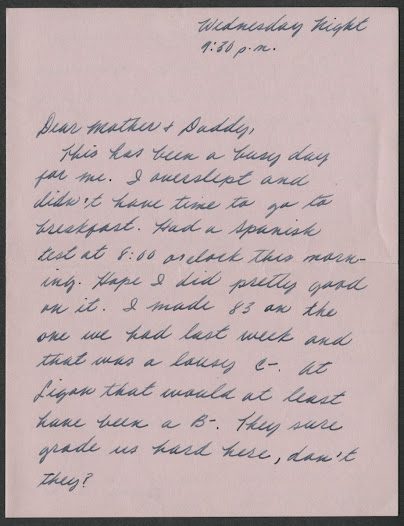 Wednesday Night
9:30 p.m.
Dear Mother & Daddy,
This has been a busy day
for me. I overslept and
didn't have time to go to
breakfast. Had a Spanish
test at 8:00 o'clock this morn-
ing. Hope I did pretty good
on it. I made 83 on the
one we had last week and
that was a lousy C-. At
Ligon that would at least
have been a B-. They sure
grade us hard here, don't
they?